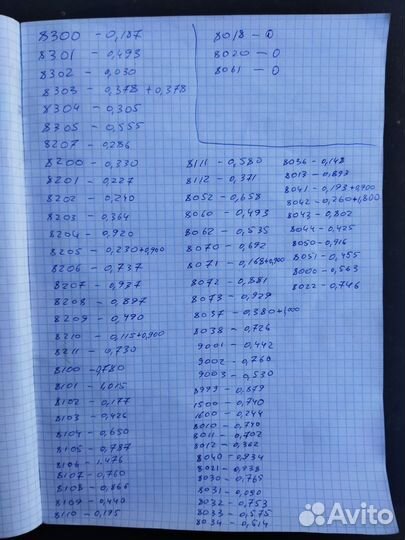 8300 - 0,187
8301 - 0,493
8302 - 0,030
8303 - 0,378 + 0,378
8304 - 0,305
8305 - 0,555
8207 - 0,286
8200 - 0,330
8201 - 0,227
8202 - 0,240
8203 - 0,364
8204 - 0,920
8205 - 0,230+0,900
8206 - 0,737
8207 - 0,927
8208 - 0,897
8209 - 0,490
8210 - 0,115+0,900
8211 - 0,730
8100 - 0,780
8101 - 1,015
8102 - 0,177
8103 - 0,426
8104 - 0,650
8105 - 0,787
8106 - 1,476
8107 - 0,760
8108 - 0,866
8109 - 0,440
8110 - 0,195
8018 - 0
8020 - 0
8061 - 0
8111 - 0,580
8112 - 0,371
8052 - 0,658
8060 - 0,493
8062 - 0,535
8070 - 0,692
8071 - 0,168+0,900
8072 - 0,881
8073 - 0,929
8037 - 0,380+1,000
8038 - 0,726
9001 - 0,442
9002 - 0,760
9003 - 0,530
8999 - 0,879
1500 - 0,740
1600 - 0,244
8010 - 0,740
8011 - 0,702
8012 - 0,362
8040 - 0,934
8021 - 0,938
8030 - 0,765
8031 - 0,090
8032 - 0,753
8033 - 0,575
8034 - 0,614
8036 - 0,148
8013 - 0,893
8041 - 0,193+0,900
8042 - 0,260+1,800
8043 - 0,802
8044 - 0,425
8050 - 0,916
8051 - 0,455
8000 - 0,563
8022 - 0,746
Avito